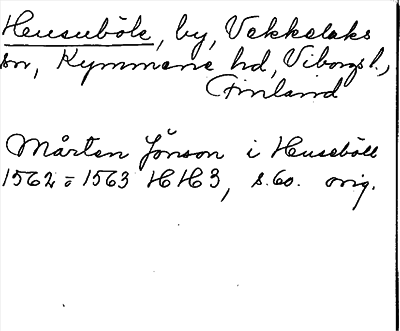 Husuböle, by, Vekkelaks
sn, Kymmene hd, Viborgs l.,
Finland
Mårten Jönson i Huseböll
1562 o 1563 HH3, s. 60. orig.